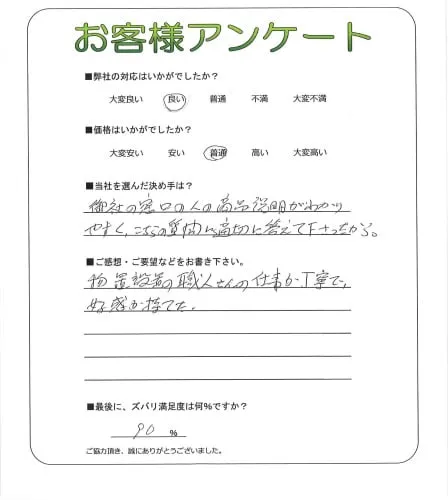 お客様アンケート
■弊社の対応はいかがでしたか？
大変良い 良い 普通 不満 大変不満
■価格はいかがでしたか？
大変安い 安い 普通 高い 大変高い
■当社を選んだ決め手は？
御社の窓口の人の商品説明がわかり
やすく、こちらの質問に適切に答えて下さったから。
■ご感想・ご要望などをお書き下さい。
物置設置の職人さんの仕事が丁寧で、
好感が持てた。
■最後に、ズバリ満足度は何％ですか？
90 %
ご協力頂き、誠にありがとうございました。